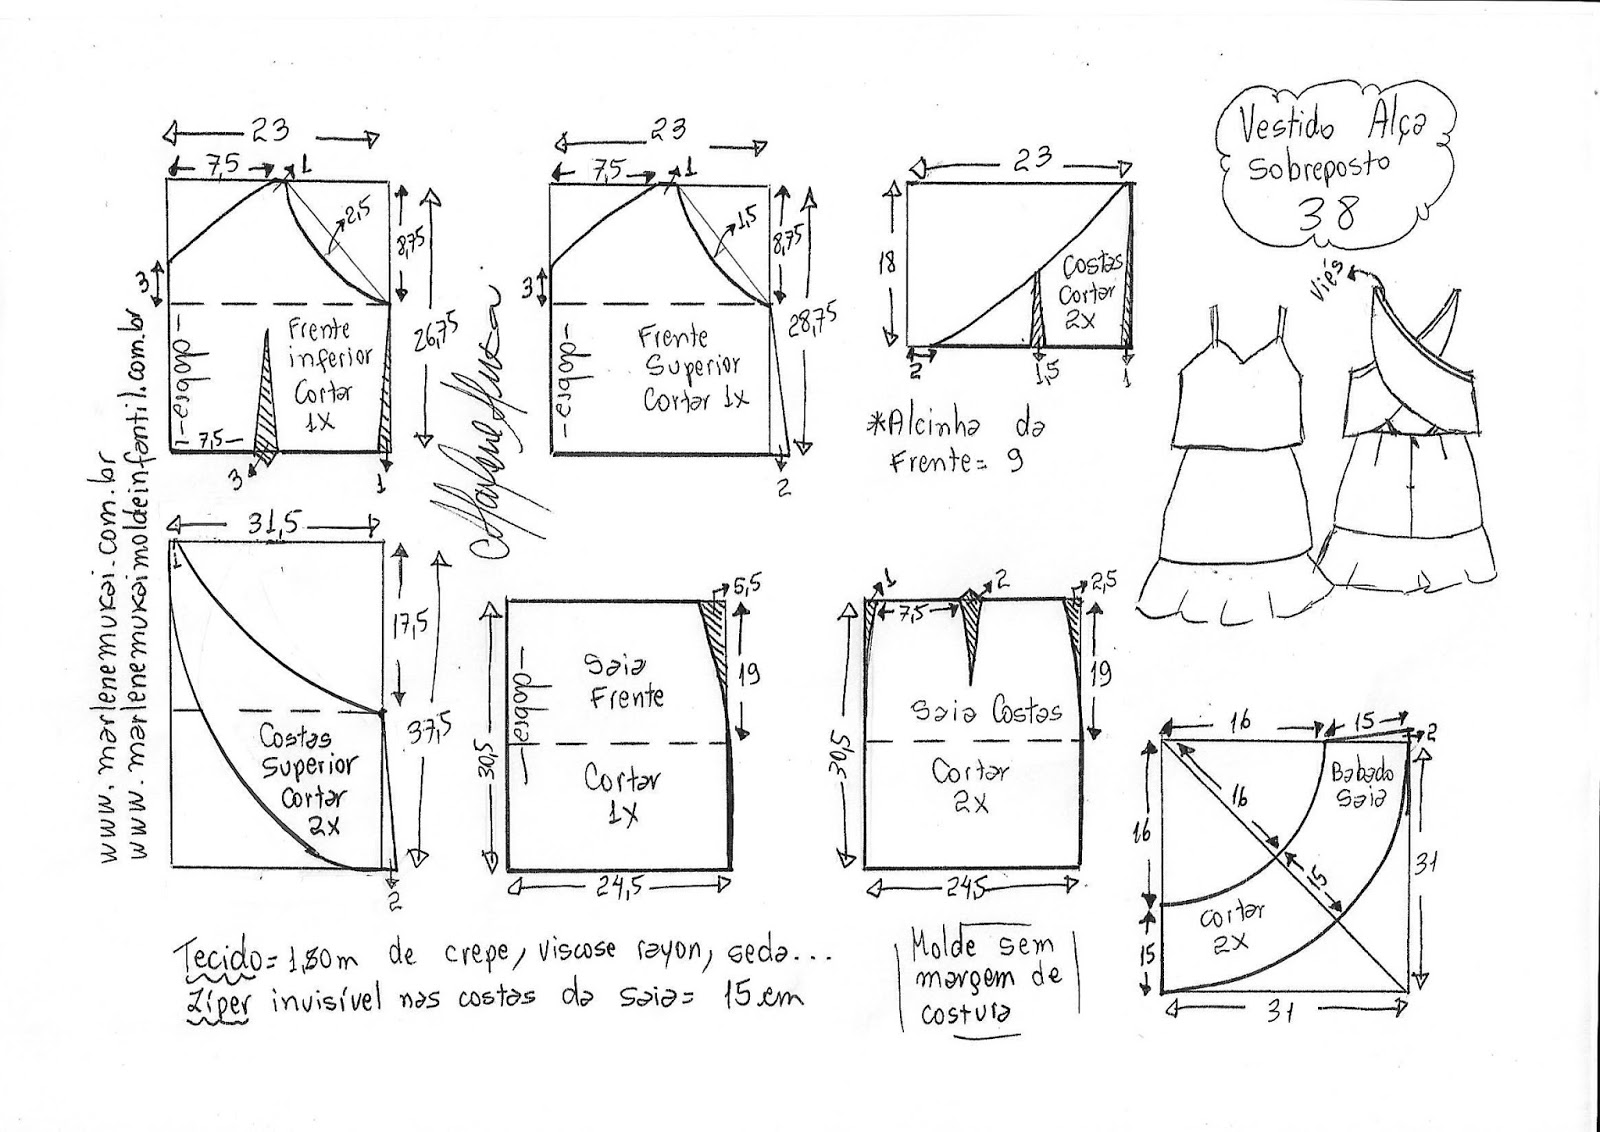 Vestido Alça
Sobreposto
38
23
7,5
1
2,5
8,75
3
26,75
dobra
Frente
inferior
Cortar
1X
7,5
3
1
23
7,5
1
1,5
8,75
3
28,75
dobra
Frente
Superior
Cortar 1X
2
23
18
Costas
Cortar
2X
2
1,5
1
*Alcinha da
Frente= 9
Viés
www.marlenemukai.com.br
www.marlenemukaimoldeinfantil.com.br
31,5
1
17,5
37,5
Costas
Superior
Cortar
2X
2
5,5
19
30,5
dobra
Saia
Frente
Cortar
1X
24,5
1
7,5
2
2,5
19
30,5
Saia Costas
Cortar
2X
245
16
15
2
Babado
Saia
16
16
15
15
31
Cortar
2X
31
Tecido= 1,80m de crepe, viscose rayon, seda...
Zíper invisível nas costas da saia= 15 cm
Molde sem
margem de
costura